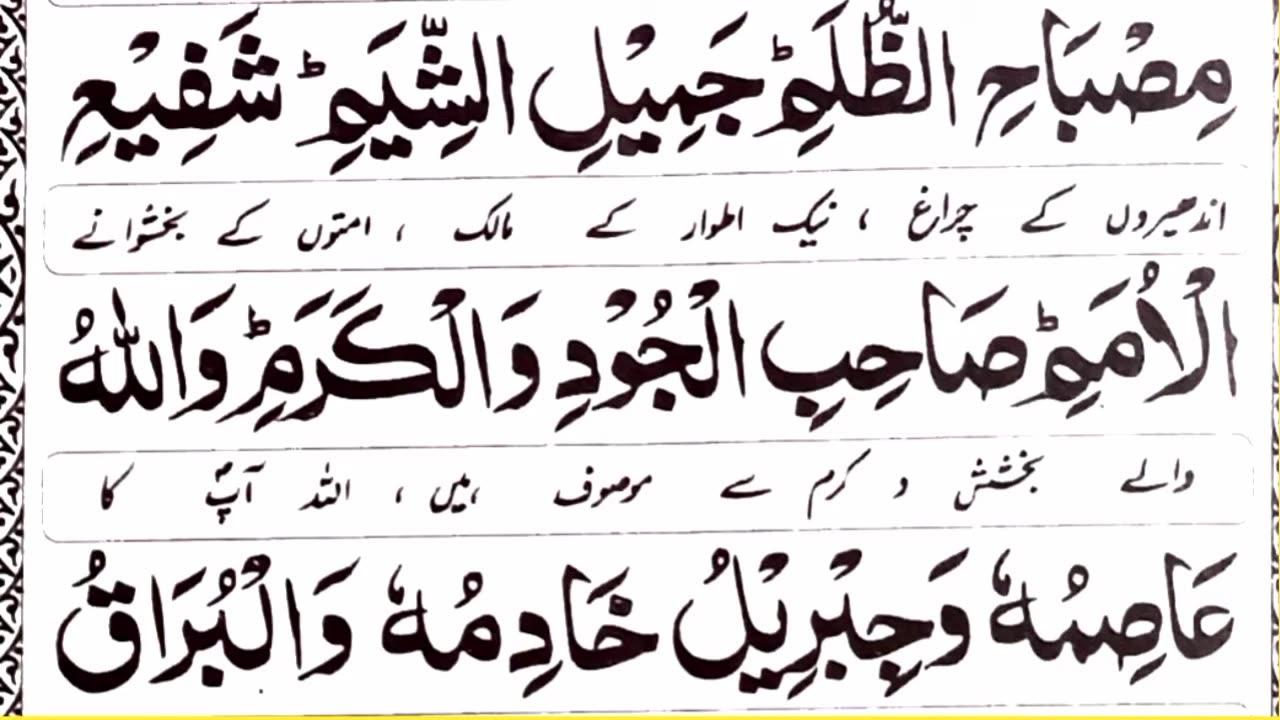 مِصْبَاحِ الظُّلَمِ ؕ جَمِيْلِ الشِّيَمِ ؕ شَفِيْعِ
اندھیروں کے چراغ ، نیک اطوار کے مالک ، امتوں کے بخشوانے
الْاُمَمِ ؕ صَاحِبِ الْجُوْدِ وَالْكَرَمِ ؕ وَاللّٰهُ
والے بخشش و کرم سے موصوف ہیں ، اللہ آپؐ کا
عَاصِمُهٗ وَجِبْرِيْلُ خَادِمُهٗ وَالْبُرَاقُ